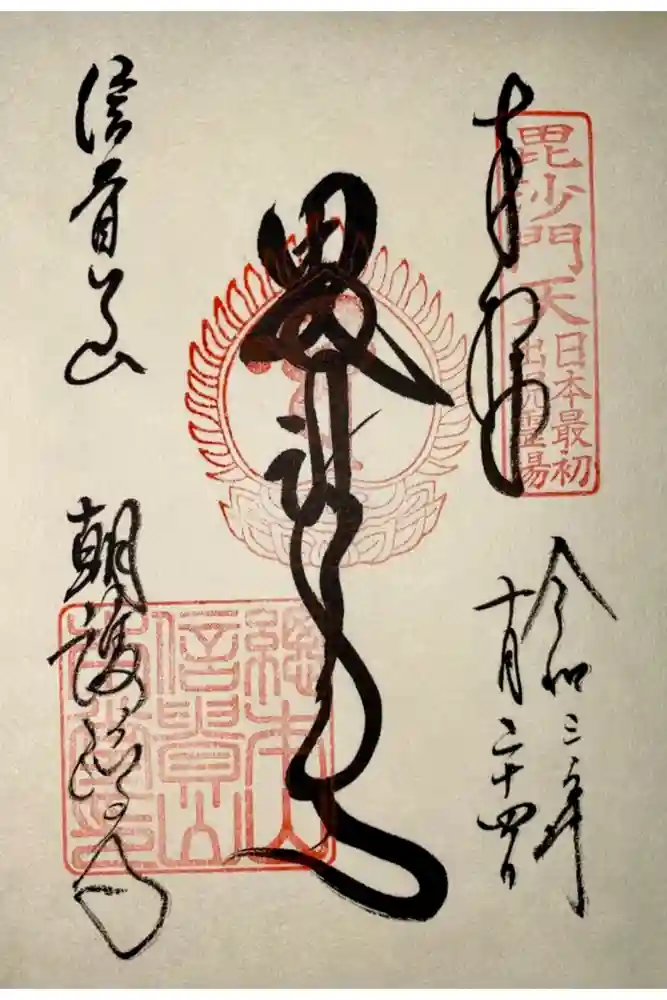 奉拝
毘沙門天
日本最初
出現靈場
令和三年
十月二十四日
毘沙門天
信貴山
朝護孫子寺
總本山
信貴山